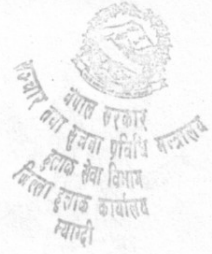 नेपाल सरकार
सञ्चार तथा सूचना प्रविधि मन्त्रालय
हुलाक सेवा विभाग
जिल्ला हुलाक कार्यालय
म्याग्दी